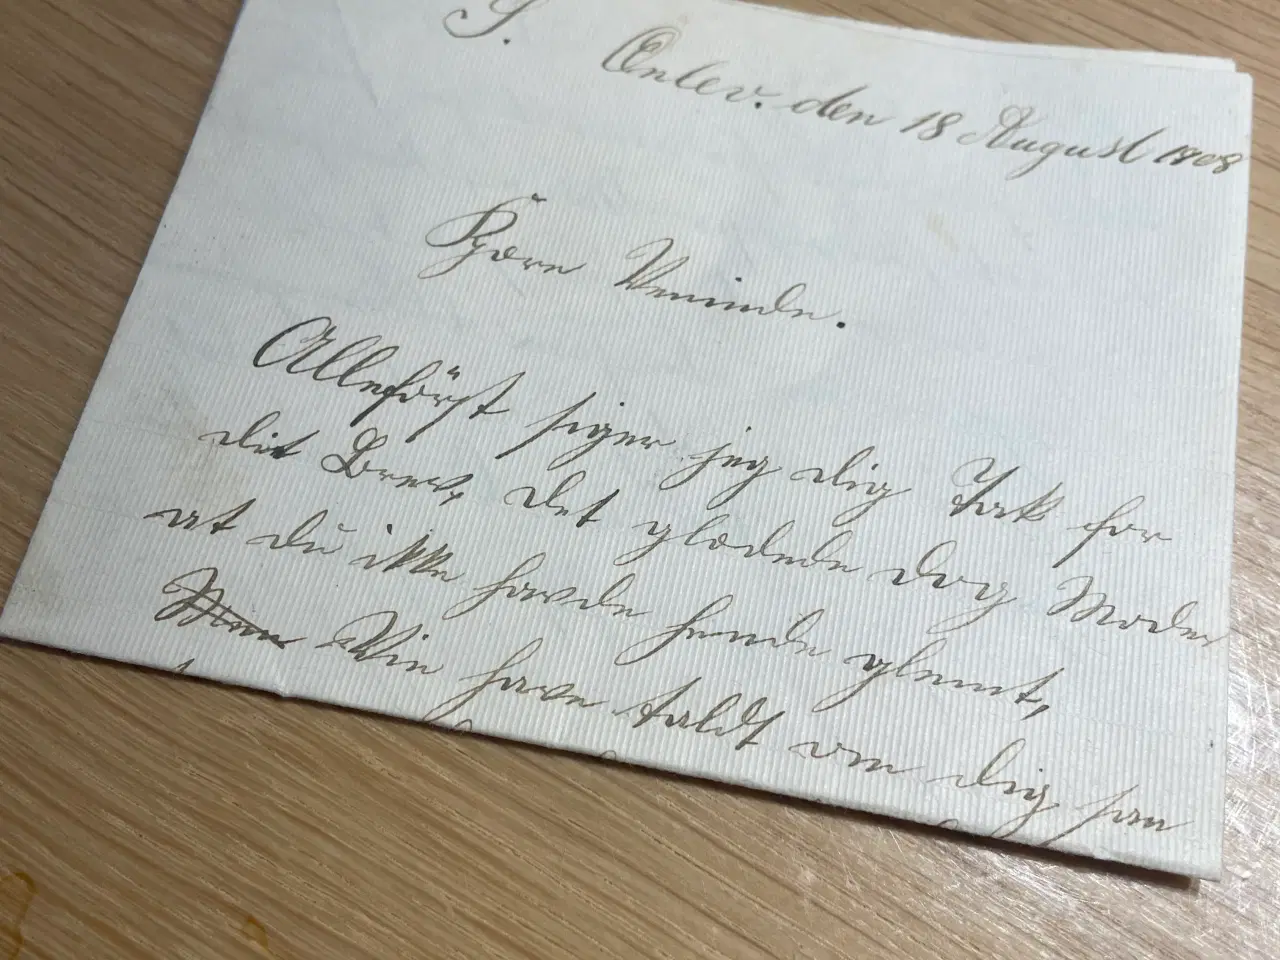 S. Enlev. den 18 August 1908
Kjære Veninde.
Alleförst siger jeg dig Tak for
dit Brev, det glædede dog Moder
at du ikke havde hende glemt,
Vie have taldt om dig saa